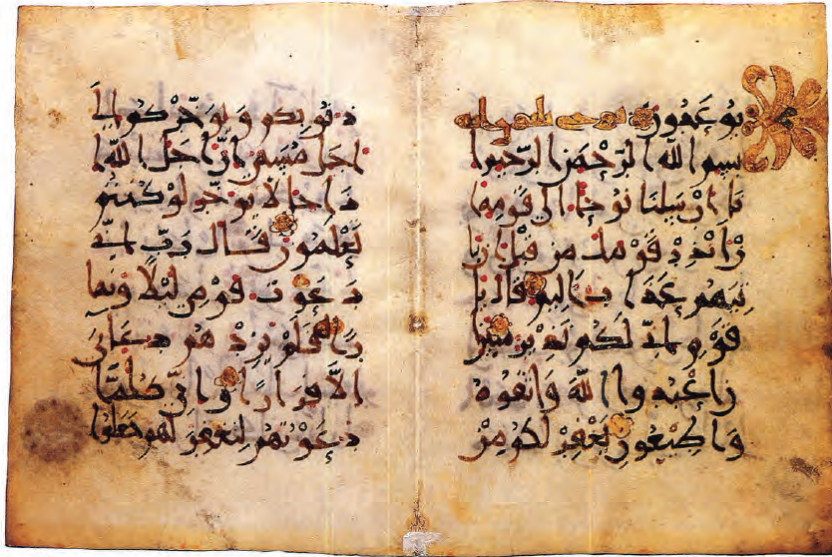 يُوعَدُونَ نوح
بسم الله الرَّحْمٰنِ الرَّحيم ا
نا ارْسلنَا نُوحًا الى قَومِه ا
نَ انْذِرْ قَوْمَك مِن قَبْل ان يا
تِيَهُم عَذَاب اليم قال يا
قَوم اِنّي لَكُم نَذِير مُبِين ا
نِ اعْبُدوا اللهَ وَاتَّقُوهُ
وَاَطِيعُونِ يَغْفِرْ لَكُم مِنْ
ذنُوبِكُم وَيُوَخِّرْكُم اِلَى
اجَل مُسَمى اِنَّ اجَلَ اللهِ ا
ذَا جا لا يُوَخَّر لَوْ كُنتُم
تَعْلَمُون قَال رَبِّ اِنّي
دَعَوْتُ قَوْمِي لَيْلا وَنَها
رًا فلَمْ يَزِدْهُم دُعَاى
الّا فِرَارًا وَاِنّي كُلَّمَا
دَعَوْتُهُم لِتَغْفِرَ لَهُم جَعَلوا